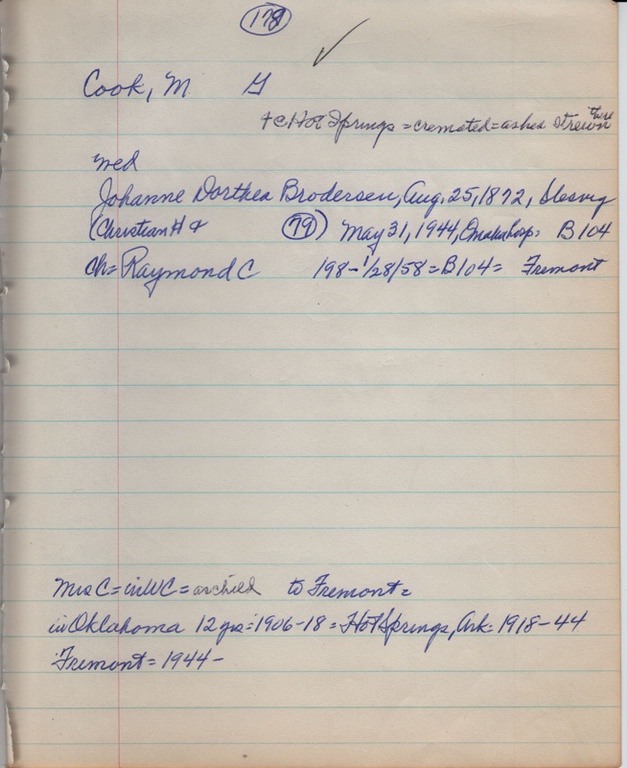 178
✓
Cook, M G
+ @ Hot Springs = cremated = ashes strewn there
wed
Johanne Dorthea Brodersen, Aug. 25, 1872, Slesvig
(Christian H + (79) May 31, 1944, Omaha hosp: B104
ch = Raymond C 198 - 1/28/58 = B104 = Fremont
Mrs C = in WC = as child to Fremont =
in Oklahoma 12 yrs: 1906-18 = Hot Springs, Ark: 1918-44
Fremont = 1944-